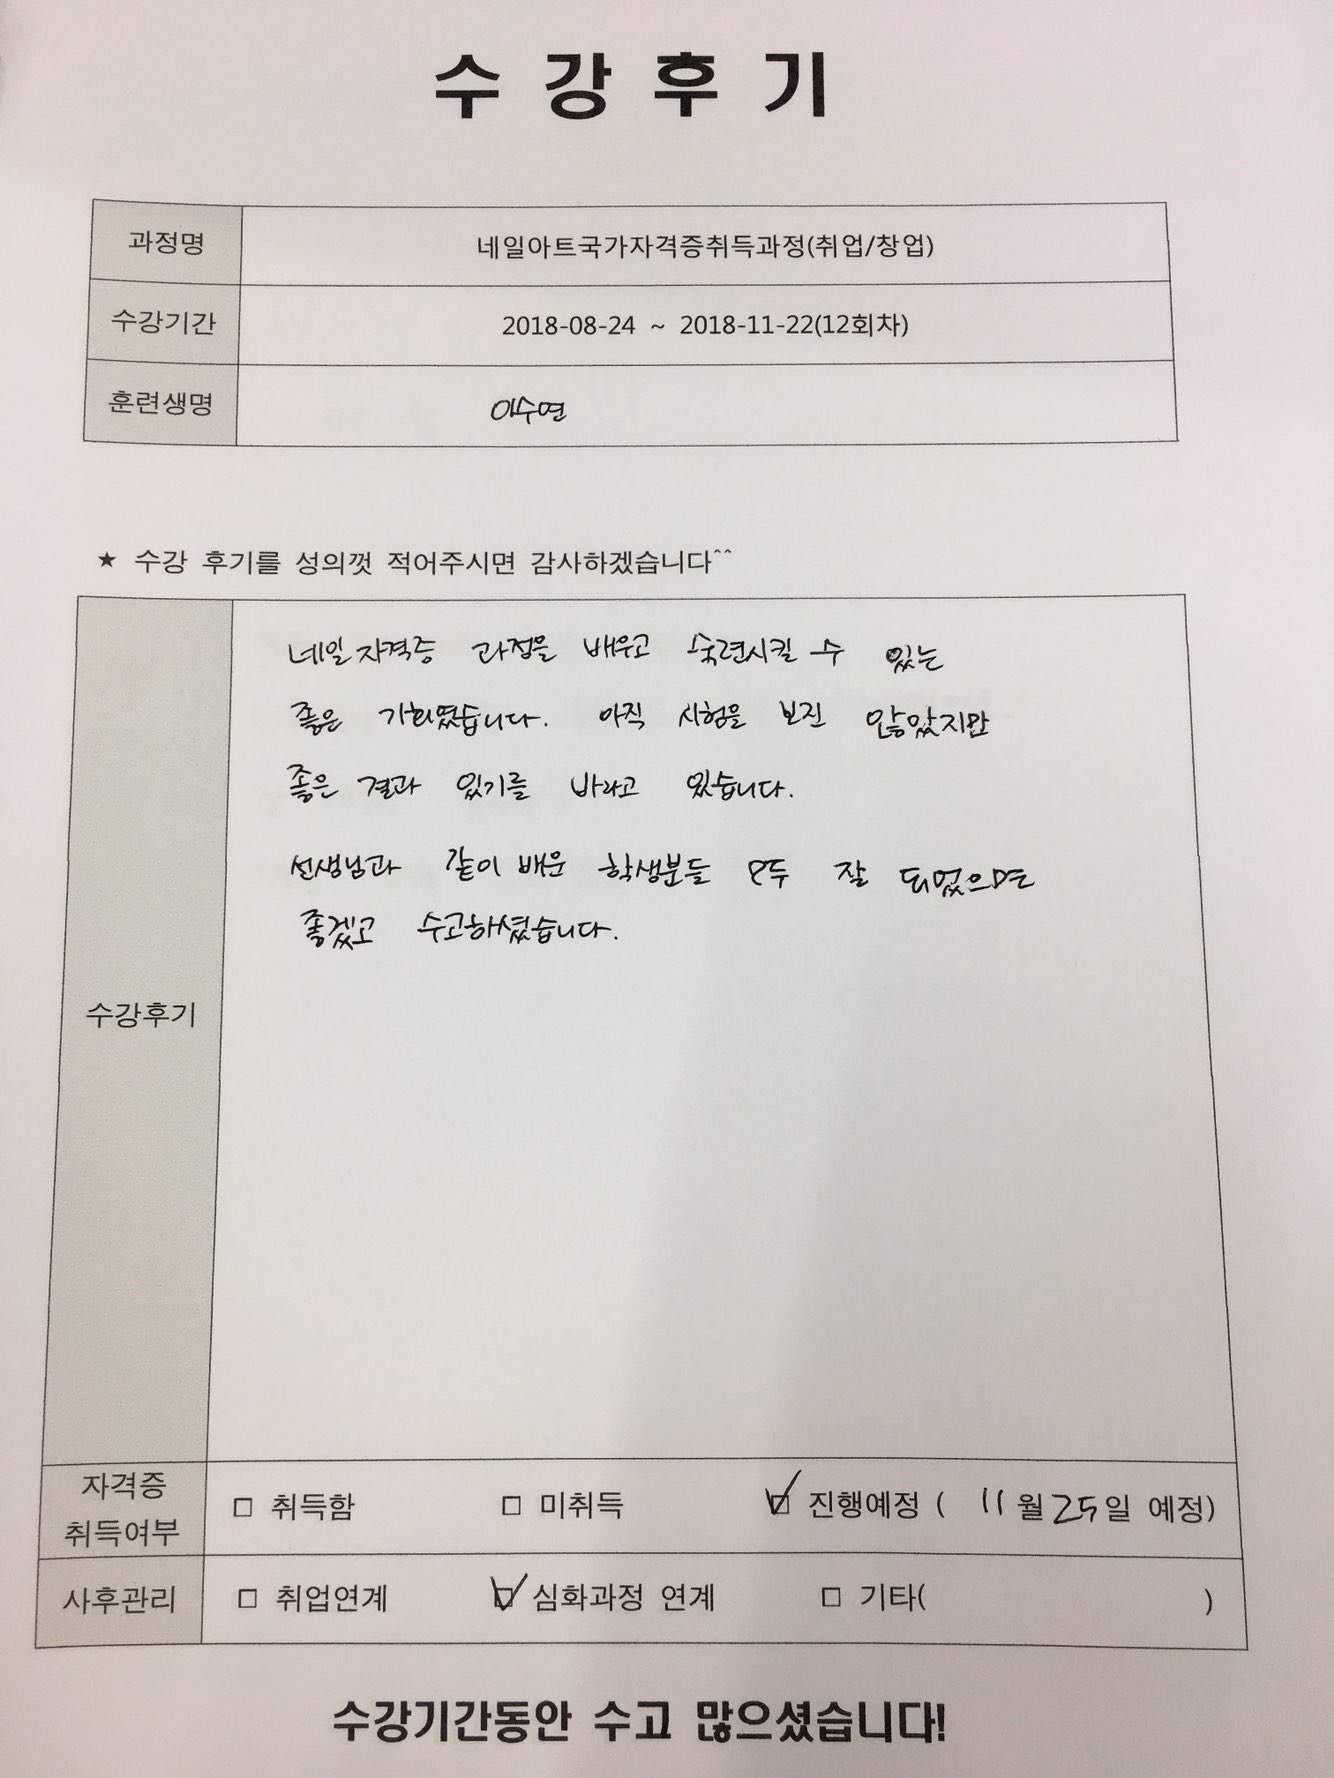 수 강 후 기
과정명 네일아트국가자격증취득과정(취업/창업)
수강기간 2018-08-24 ~ 2018-11-22(12회차)
훈련생명 이수연
★ 수강 후기를 성의껏 적어주시면 감사하겠습니다^^
네일 자격증 과정을 배우고 숙련시킬 수 있는
좋은 기회였습니다. 아직 시험을 보진 않았지만
좋은 결과 있기를 바라고 있습니다.
선생님과 같이 배운 학생분들 모두 잘 되었으면
좋겠고 수고하셨습니다.
수강후기
자격증
취득여부
□ 취득함 □ 미취득 ☑ 진행예정 ( 11월 25일 예정)
사후관리 □ 취업연계 ☑ 심화과정 연계 □ 기타( )
수강기간동안 수고 많으셨습니다!